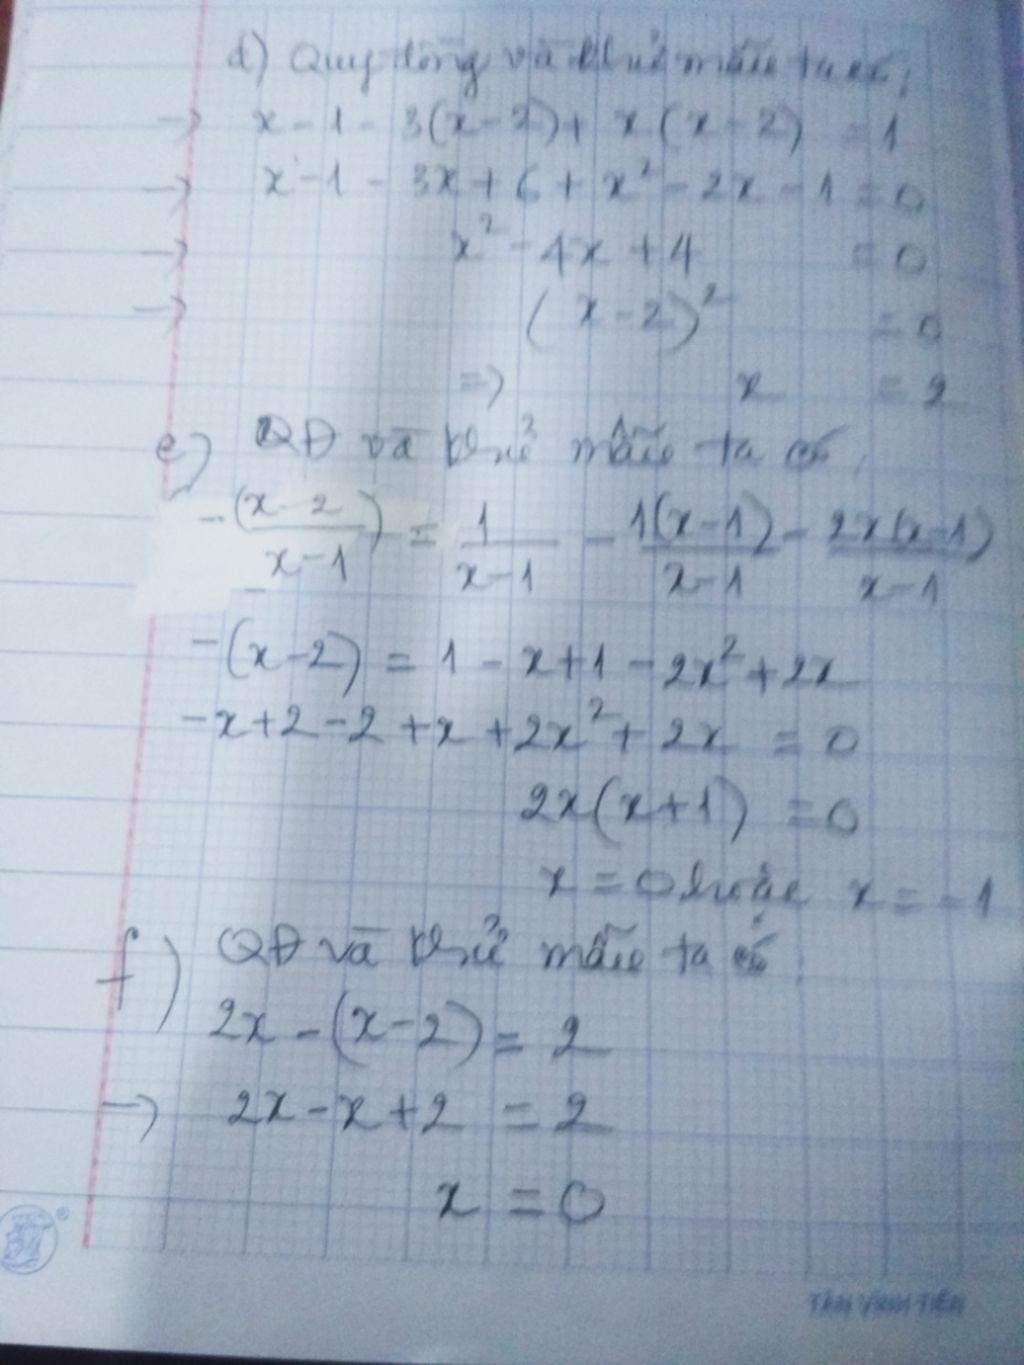 d) Quy đồng và khử mẫu ta có;
→ x - 1 - 3(x - 2) + x(x - 2) = 1
→ x - 1 - 3x + 6 + x² - 2x - 1 = 0
→ x² - 4x + 4 = 0
→ (x - 2)² = 0
=> x = 2
e) QĐ và khử mẫu ta có,
-(x - 2 / x - 1) = 1 / x - 1 - 1(x - 1) / x - 1 - 2x(x - 1) / x - 1
-(x - 2) = 1 - x + 1 - 2x² + 2x
-x + 2 - 2 + x + 2x² + 2x = 0
2x(x + 1) = 0
x = 0 hoặc x = -1
f) QĐ và khử mẫu ta có:
2x - (x - 2) = 2
→ 2x - x + 2 = 2
x = 0